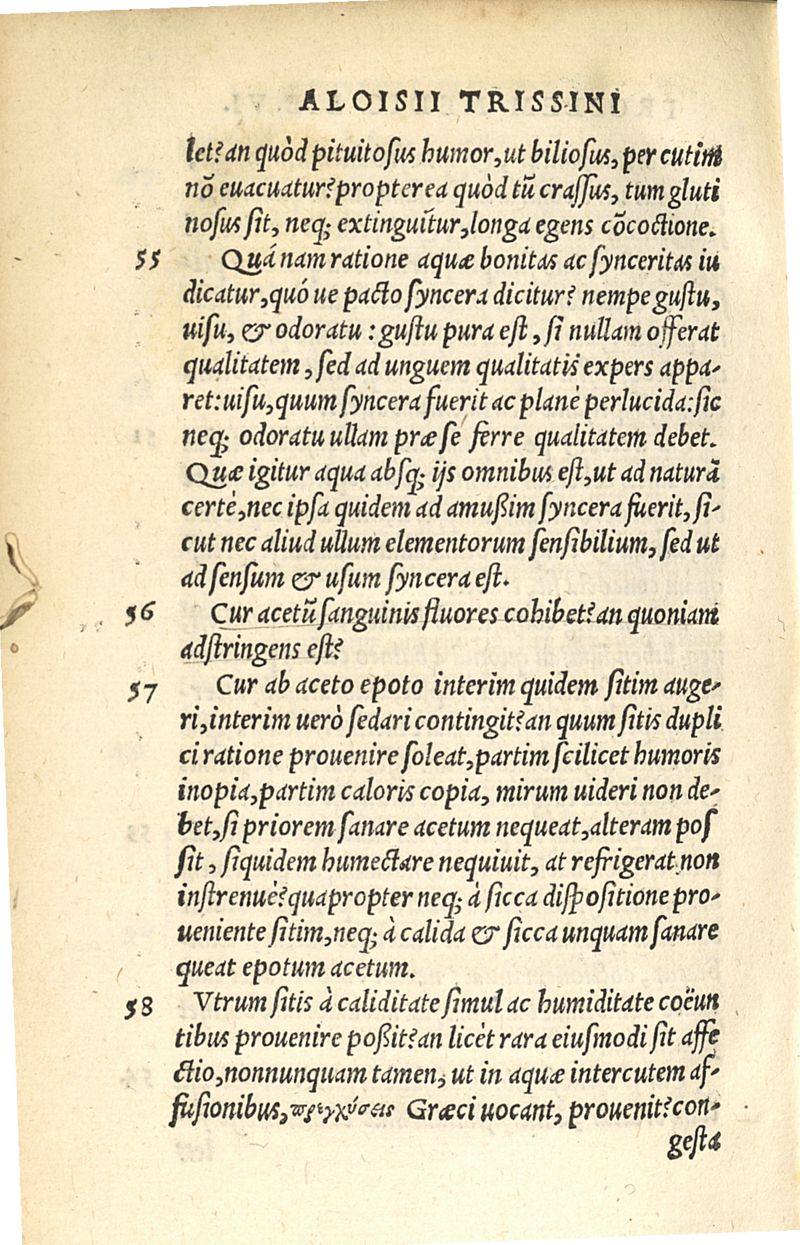 ALOISII TRISSINI
let? an quòd pituitosus humor, ut biliosus, per cutim
nō euacuatur? propterea quòd tū crassus, tum gluti
nosus sit, neq; extinguit̃ur, longa egens cōcoctione.
55 Quá nam ratione aquæ bonitas ac synceritas iu
dicatur, quó ue pacto syncera dicitur? nempe gustu,
uisu, & odoratu : gustu pura est, si nullam offerat
qualitatem, sed ad unguem qualitatis expers appa-
ret: uisu, quum syncera fuerit ac planè perlucida: sic
neq; odoratu ullam præ se ferre qualitatem debet.
Quæ igitur aqua absq; ijs omnibus est, ut ad naturā
certè, nec ipsa quidem ad amußim syncera fuerit, si-
cut nec aliud ullum elementorum sensibilium, sed ut
ad sensum & usum syncera est.
56 Cur acetū sanguinis fluores cohibet? an quoniam
adstringens est?
57 Cur ab aceto epoto interim quidem sitim auge-
ri, interim uerò sedari contingit? an quum sitis dupli
ci ratione prouenire soleat, partim scilicet humoris
inopia, partim caloris copia, mirum uideri non de-
bet, si priorem sanare acetum nequeat, alteram pos
sit, siquidem humectare nequiuit, at refrigerat non
instrenuè? quapropter neq; à sicca dispositione pro-
ueniente sitim, neq; à calida & sicca unquam sanare
queat epotum acetum.
58 Vtrum sitis à caliditate simul ac humiditate coëun
tibus prouenire poßit? an licèt rara eiusmodi sit affe
ctio, nonnunquam tamen, ut in aquæ intercutem af-
fusionibus, περιχύσεις Græci uocant, prouenit? con-
gesta